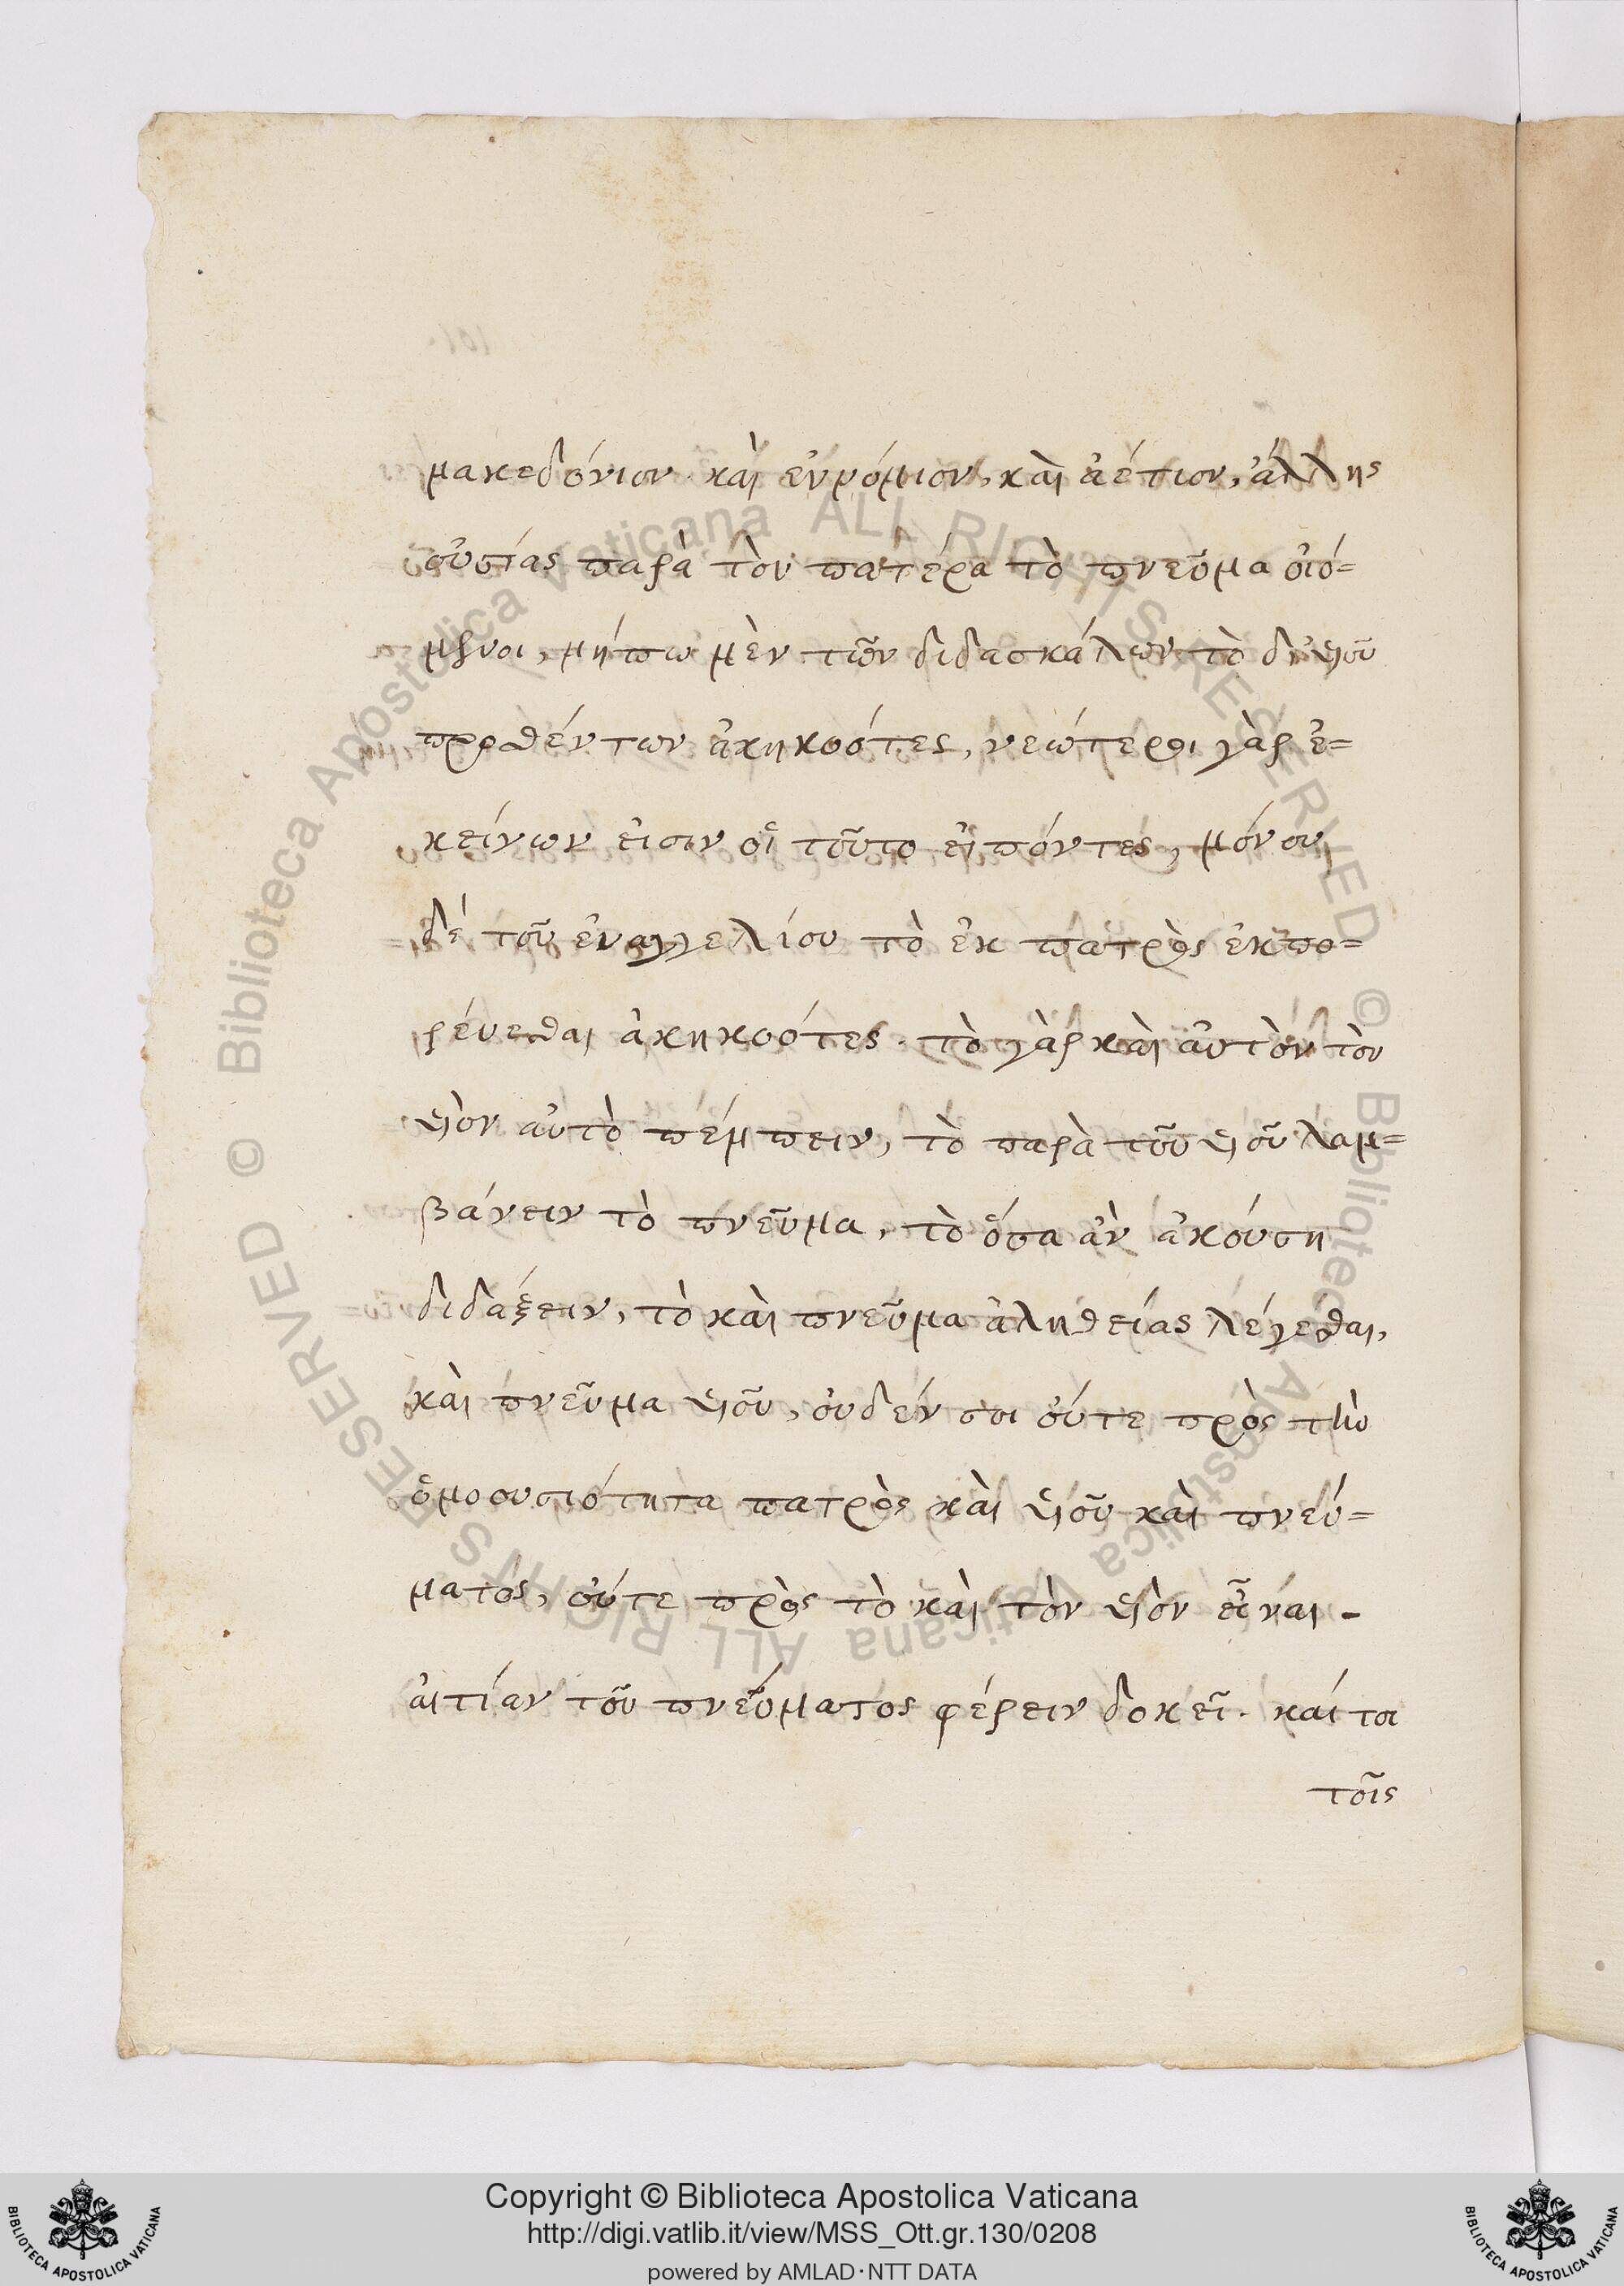 μακεδόνιον. καὶ εὐνόμιον, καὶ ἀέτιον, ἄλλης
οὐσίας παρὰ τὸν πατέρα τὸ πνεῦμα οἰό=
μενοι, μήπω μὲν τῶν διδασκάλων τὸ δι' υἱοῦ
προσθέντων ἀκηκοότες, νεώτεροι γὰρ ἐ=
κείνων εἰσιν οἳ τοῦτο εἰπόντες, μόνου
δέ τοῦ εὐαγγελίου τὸ ἐκ πατρὸς ἐκπο=
ρεύεσθαι ἀκηκοότες. τὸ γὰρ καὶ αὐτὸν τὸν
υἱὸν αὐτὸ πέμπειν, τὸ παρὰ τοῦ υἱοῦ λαμ=
βάνειν τὸ πνεῦμα, τὸ ὅσα ἂν ἀκούση
διδάξειν, τὸ καὶ πνεῦμα ἀληθείας λέγεσθαι,
καὶ πνεῦμα υἱοῦ, οὐδέν σοι οὔτε πρὸς τὴν
ὁμοουσιότητα πατρὸς καὶ υἱοῦ καὶ πνεύ=
ματος, οὔτε πρὸς τὸ καὶ τὸν υἱὸν εἶναι -
αἰτίαν τοῦ πνεύματος φέρειν δοκεῖ. καίτοι
τοῖς
© Biblioteca Apostolica Vaticana ALL RIGHTS RESERVED
© Biblioteca Apostolica Vaticana ALL RIGHTS RESERVED
Copyright © Biblioteca Apostolica Vaticana
http://digi.vatlib.it/view/MSS_Ott.gr.130/0208
powered by AMLAD·NTT DATA
BIBLIOTECA APOSTOLICA VATICANA
BIBLIOTECA APOSTOLICA VATICANA